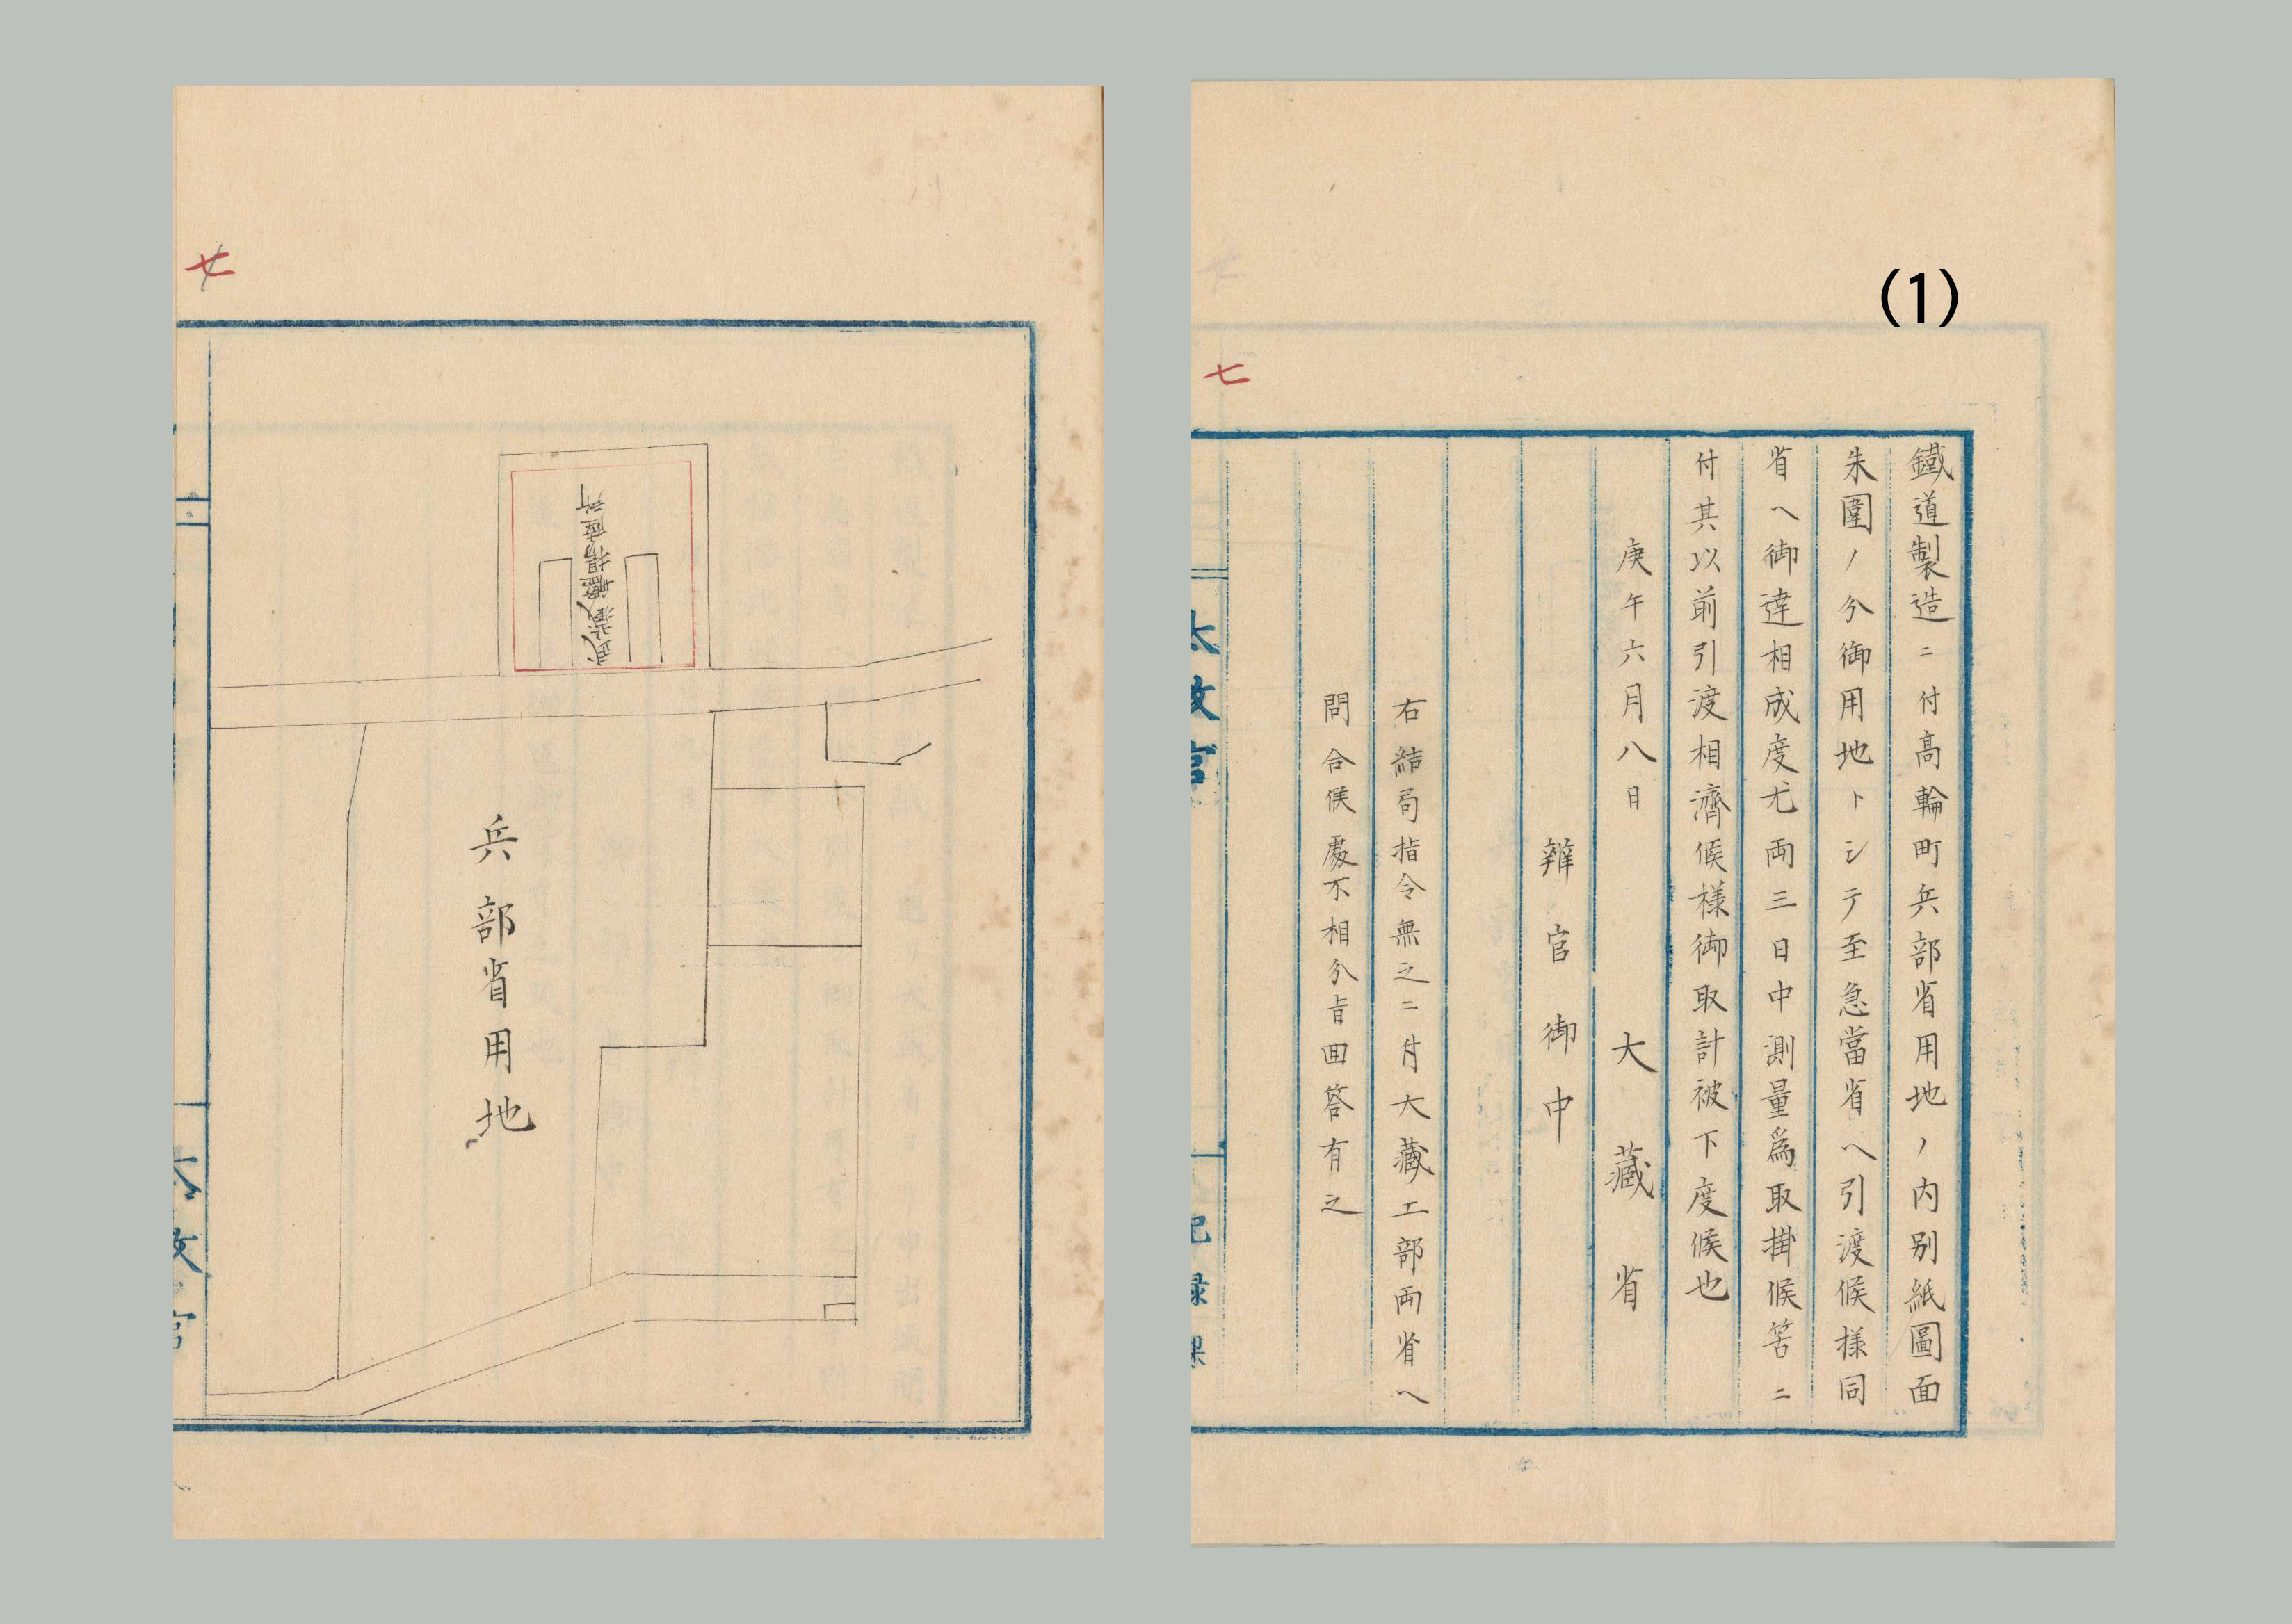 (1)
鐵道製造ニ付髙輪町兵部省用地ノ内别紙圖面
朱圍ノ分御用地トシテ至急當省ヘ引渡候様同
省ヘ御達相成度尤両三日中測量爲取掛候筈ニ
付其以前引渡相濟候様御取計被下度候也
庚午六月八日
大藏省
辨官御中
右結局指令無之ニ付大藏工部両省ヘ
問合候處不相分旨回答有之
七
太政官
記録課
廿
兵部省用地
太政官